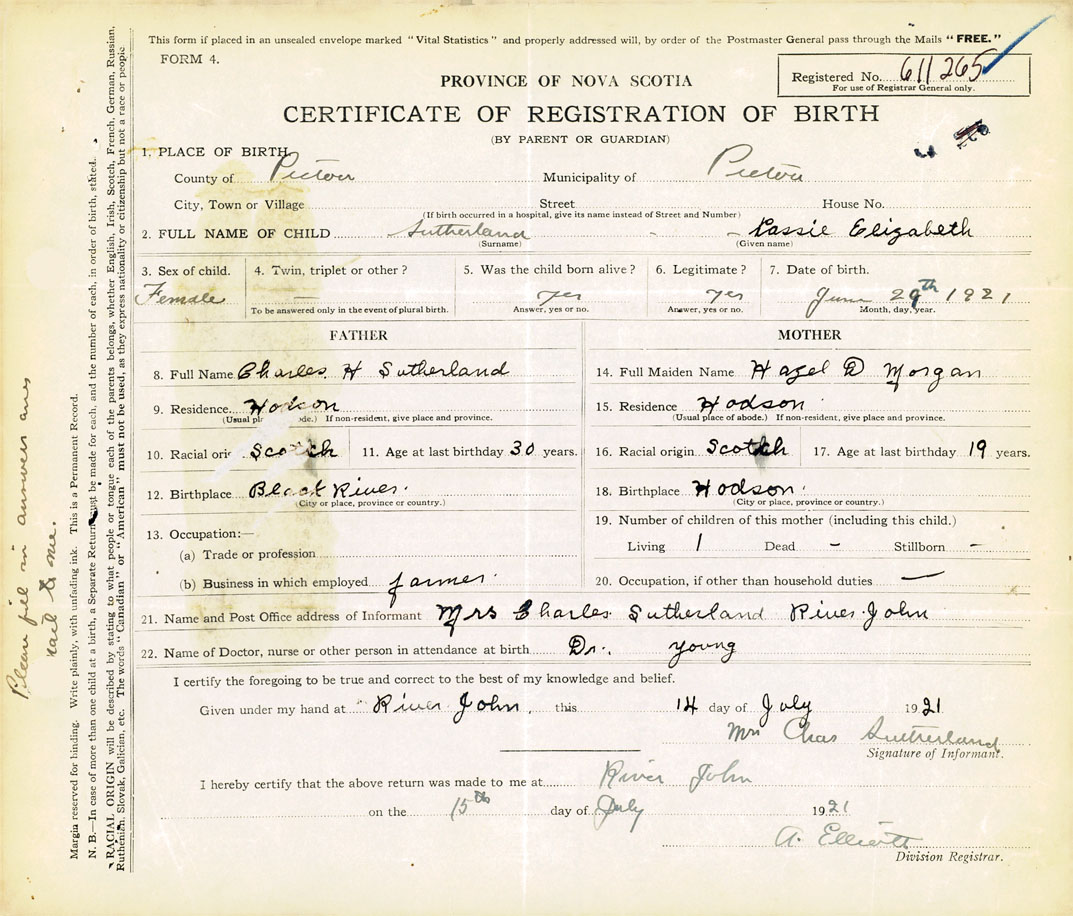 This form if placed in an unsealed envelope marked "Vital Statistics" and properly addressed will, by order of the Postmaster General pass through the Mails "FREE."
FORM 4.
Registered No. 611265
For use of Registrar General only.
PROVINCE OF NOVA SCOTIA
CERTIFICATE OF REGISTRATION OF BIRTH
(BY PARENT OR GUARDIAN)
1. PLACE OF BIRTH
County of Pictou Municipality of Pictou
City, Town or Village Street House No.
(If birth occurred in a hospital, give its name instead of Street and Number)
2. FULL NAME OF CHILD Sutherland - - Cassie Elizabeth
(Surname) (Given name)
3. Sex of child. 4. Twin, triplet or other? 5. Was the child born alive? 6. Legitimate? 7. Date of birth.
Female — yes yes June 29th 1921
To be answered only in the event of plural birth. Answer, yes or no. Answer, yes or no. Month, day, year.
FATHER
8. Full Name Charles H Sutherland
9. Residence Hodson
(Usual pl ode.) If non-resident, give place and province.
10. Racial ori Scotch 11. Age at last birthday 30 years.
12. Birthplace Black River.
(City or place, province or country.)
13. Occupation:—
(a) Trade or profession
(b) Business in which employed farmer.
MOTHER
14. Full Maiden Name Hazel D Morgan
15. Residence Hodson
(Usual place of abode.) If non-resident, give place and province.
16. Racial origin Scotch 17. Age at last birthday 19 years.
18. Birthplace Hodson.
(City or place, province or country.)
19. Number of children of this mother (including this child.)
Living 1 Dead - Stillborn -
20. Occupation, if other than household duties —
21. Name and Post Office address of Informant Mrs Charles Sutherland River John
22. Name of Doctor, nurse or other person in attendance at birth Dr. Young
I certify the foregoing to be true and correct to the best of my knowledge and belief.
Given under my hand at River John, this 14 day of July 1921
Mrs Chas Sutherland
Signature of Informant.
I hereby certify that the above return was made to me at River John
on the 15th day of July 1921
A. Elliott
Division Registrar.
Please fill in answer and
mail to me.
Margin reserved for binding. Write plainly, with unfading ink. This is a Permanent Record.
N. B.—In case of more than one child at a birth, a Separate Return must be made for each, and the number of each, in order of birth, stated.
RACIAL ORIGIN will be described by stating to what people or tongue each of the parents belongs, whether English, Irish, Scotch, French, German, Russian,
Ruthenian, Slovak, Galician, etc. The words "Canadian" or "American" must not be used, as they express nationality or citizenship but not a race or people